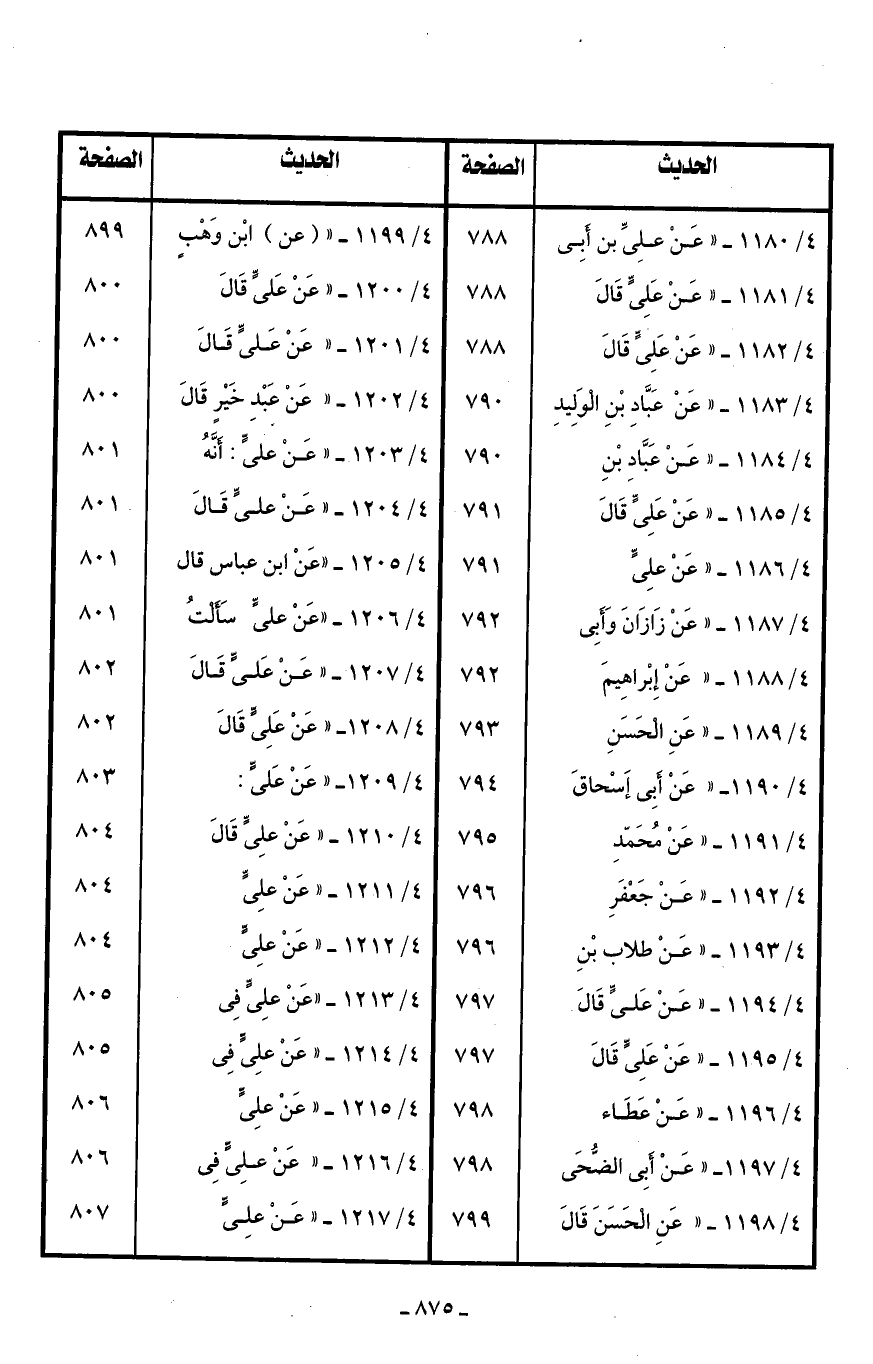 الحديث الصفحة الحديث الصفحة
٤/ ١١٨٠ ـ « عَـنْ عـلىِّ بن أَبـى ٧٨٨ ٤/ ١١٩٩ ـ « ( عن ) ابْن وَهْبٍ ٨٩٩
٤/ ١١٨١ ـ « عَـنْ عَلىٍّ قَالَ ٧٨٨ ٤/ ١٢٠٠ ـ « عَنْ عَلىٍّ قَالَ ٨٠٠
٤/ ١١٨٢ ـ « عَنْ عَلِىٍّ قَالَ ٧٨٨ ٤/ ١٢٠١ ـ « عَنْ عَـلىٍّ قَـالَ ٨٠٠
٤/ ١١٨٣ ـ « عَنْ عَبَّاد بْنِ الْوَلِيد ٧٩٠ ٤/ ١٢٠٢ ـ « عَنْ عَبْدِ خَيْرٍ قَالَ ٨٠٠
٤/ ١١٨٤ ـ « عَـنْ عَبَّاد بْنِ ٧٩٠ ٤/ ١٢٠٣ ـ « عَـنْ علىٍّ : أَنَّهُ ٨٠١
٤/ ١١٨٥ ـ « عَنْ عَلِىٍّ قَالَ ٧٩١ ٤/ ١٢٠٤ ـ « عَـنْ علـىٍّ قَـالَ ٨٠١
٤/ ١١٨٦ ـ « عَنْ علِىٍّ ٧٩١ ٤/ ١٢٠٥ ـ «عَنْ ابن عباس قال ٨٠١
٤/ ١١٨٧ ـ « عَنْ زَازَانَ وَأَبِى ٧٩٢ ٤/ ١٢٠٦ ـ «عَنْ علىٍّ سَأَلْتُ ٨٠١
٤/ ١١٨٨ ـ « عَنْ إِبْراهِيمَ ٧٩٢ ٤/ ١٢٠٧ ـ « عَـنْ عَلـىٍّ قَـالَ ٨٠٢
٤/ ١١٨٩ ـ « عَنِ الْحَسَنِ ٧٩٣ ٤/ ١٢٠٨ـ « عَنْ عَلِىٍّ قَالَ ٨٠٢
٤/ ١١٩٠ـ « عَنْ أَبِى إِسْحاقَ ٧٩٤ ٤/ ١٢٠٩ـ « عَنْ عَلىٍّ : ٨٠٣
٤/ ١١٩١ ـ « عَنْ مُحَمّدِ ٧٩٥ ٤/ ١٢١٠ ـ « عَنْ علِىٍّ قَالَ ٨٠٤
٤/ ١١٩٢ ـ « عَـنْ جَعْفَرِ ٧٩٦ ٤/ ١٢١١ ـ « عَنْ علِىٍّ ٨٠٤
٤/ ١١٩٣ ـ « عَـنْ طلاب بْنِ ٧٩٦ ٤/ ١٢١٢ ـ « عَنْ علِىٍّ ٨٠٤
٤/ ١١٩٤ ـ « عَـنْ عَلـىٍّ قَالَ ٧٩٧ ٤/ ١٢١٣ ـ «عَنْ علِىٍّ فِى ٨٠٥
٤/ ١١٩٥ ـ « عَنْ عَلِىٍّ قَالَ ٧٩٧ ٤/ ١٢١٤ ـ « عَنْ علِىٍّ فِى ٨٠٥
٤/ ١١٩٦ ـ « عَـنْ عَطَـاء ٧٩٨ ٤/ ١٢١٥ ـ « عَنْ علىٍّ ٨٠٦
٤/ ١١٩٧ـ « عَـنْ أَبِى الضُّحَى ٧٩٨ ٤/ ١٢١٦ ـ « عَنْ عـلِىٍّ فِى ٨٠٦
٤/ ١١٩٨ ـ « عَنِ الْحَسَنَ قَالَ ٧٩٩ ٤/ ١٢١٧ ـ « عَـنْ علِـىٍّ ٨٠٧
ـ ٨٧٥ ـ